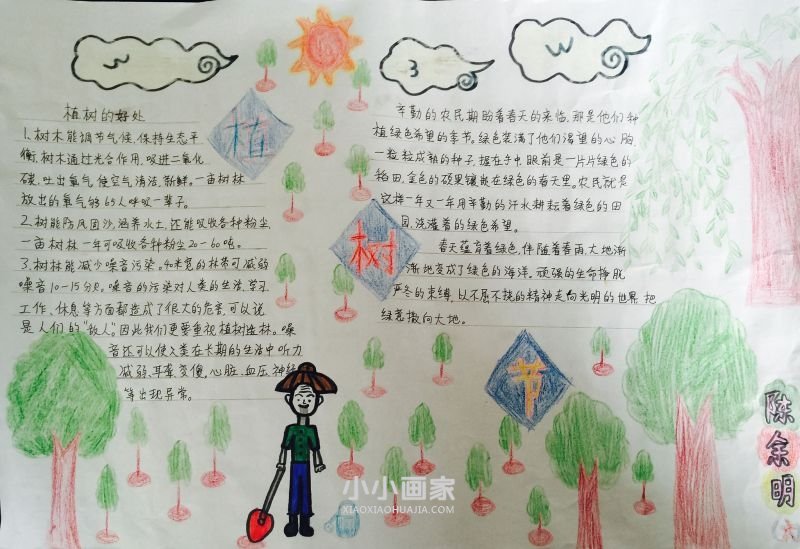 植树的好处
1.树木能调节气候,保持生态平
衡,树木通过光合作用,吸进二氧化
碳,吐出氧气,使空气清洁、新鲜。一亩树林
放出的氧气够65人呼吸一辈子。
2.树能防风固沙,涵养水土,还能吸收各种粉尘,
一亩树林一年可吸收各种粉尘20-60吨。
3.树林能减少噪音污染。40米宽的林带可减弱
噪音10-15分贝。噪音的污染对人类的生活、学习、
工作、休息等方面都造成了很大的危害,可以说
是人们的"敌人"。因此我们更要重视植树造林。噪
音还可以使人类在长期的生活中听力
减弱、耳聋、变傻,心脏、血压、神经
等出现异常。
植
树
节
3
W
辛勤的农民期盼着春天的来临,那是他们种
植绿色希望的季节。绿色装满了他们渴望的心胸,
一粒粒成熟的种子,握在手中,眼前是一片片绿色的
稻田,金色的硕果镶嵌在绿色的春天里。农民就是
这样一年又一年用辛勤的汗水耕耘着绿色的田
园,浇灌着的绿色希望。
春天蕴育着绿色,伴随着春雨,大地渐
渐地变成了绿色的海洋。顽强的生命挣脱
严冬的束缚,以不屈不挠的精神走向光明的世界,把
绿意撒向大地。
陈余明
小小画家
XIAOXIAOHUAJIA.COM